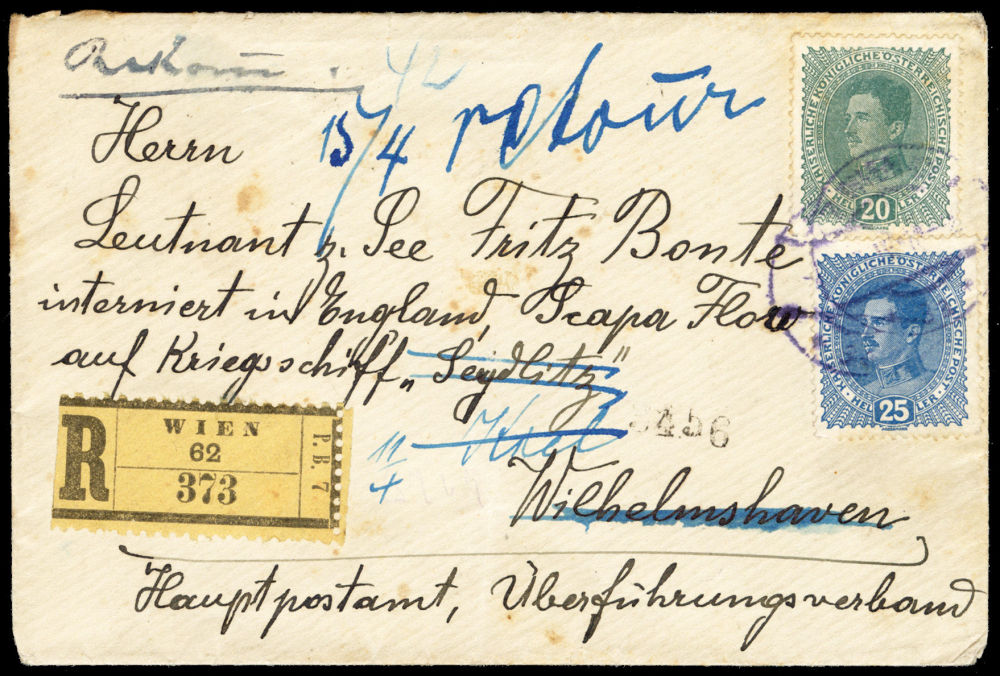 Rekom.
42
15/4 retour
Herrn
Leutnant z. See Fritz Bonte
interniert in England, Scapa Flow
auf Kriegsschiff „Seydlitz“
11/4 Kiel
3456
Wilhelmshaven
Hauptpostamt, Überführungsverband
R
WIEN
62
373
P. B. 7
KAISERLICHE KÖNIGLICHE ÖSTERREICHISCHE POST
HELLER
20
KAISERLICHE KÖNIGLICHE ÖSTERREICHISCHE POST
HELLER
25